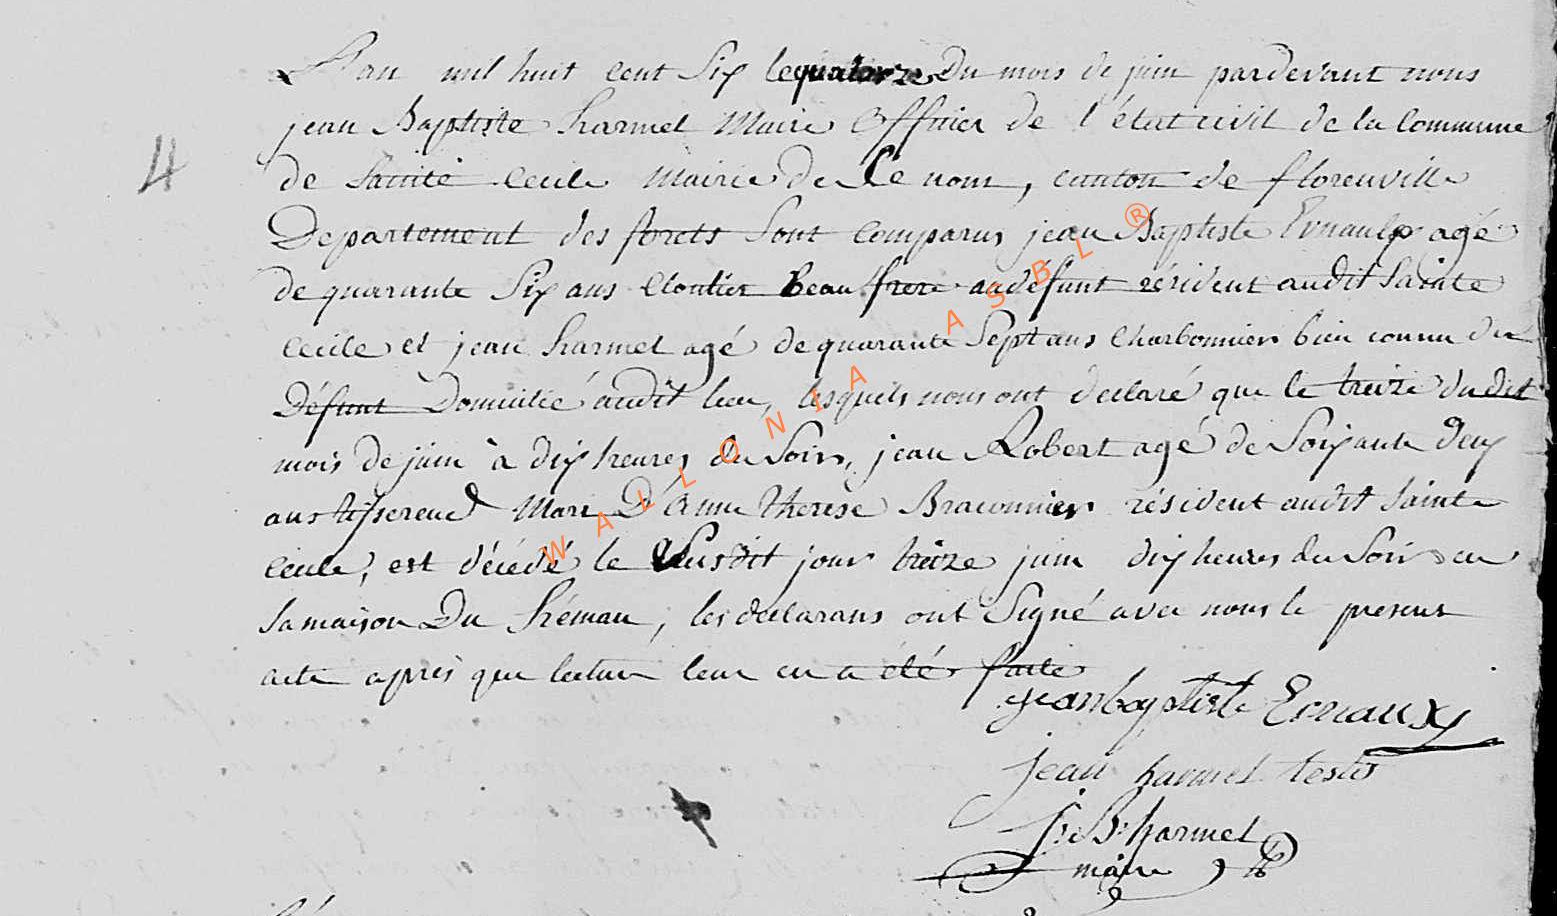 L'an mil huit cent Six le quatorze Du mois de juin pardevant nous
jean Baptiste harmel Maire Officier de l'état civil de la Commune
4
de Sainte Cecile Mairie De Ce nom, canton de florenville
Departement des forets Sont comparus jean Baptiste Ernaulx agé
de quarante Six ans Cloutier beau frere au défunt résident audit Sainte
Cecile et jean harmel agé de quarante Sept ans Charbonnier bien connu du
Défunt Domicilié audit lieu, lesquels nous ont declaré que le treize dudit
mois de juin à dix heures du Soir, jean Robert agé de Soixante Deux
ans tisserend Mari D'Anne Therese Braconnier résident audit Sainte
Cecile, est décédé le Susdit jour treize juin dix heures du Soir en
Sa maison Du , les declarans ont Signé avec nous le present
acte après que lecture leur en a été faite
jean baptiste Ernaux
jean harmel testis
J: B: harmel
maire
WALLONIA ASBL ®